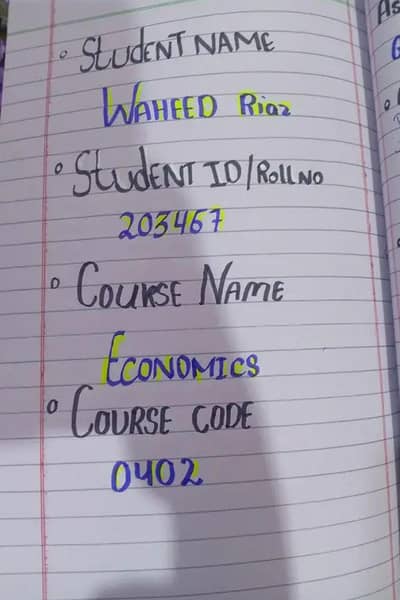 ° STUDENT NAME
WAHEED Riaz
° STUDENT ID/ROLL NO
203467
° COURSE NAME
ECONOMICS
° COURSE CODE
0402
As